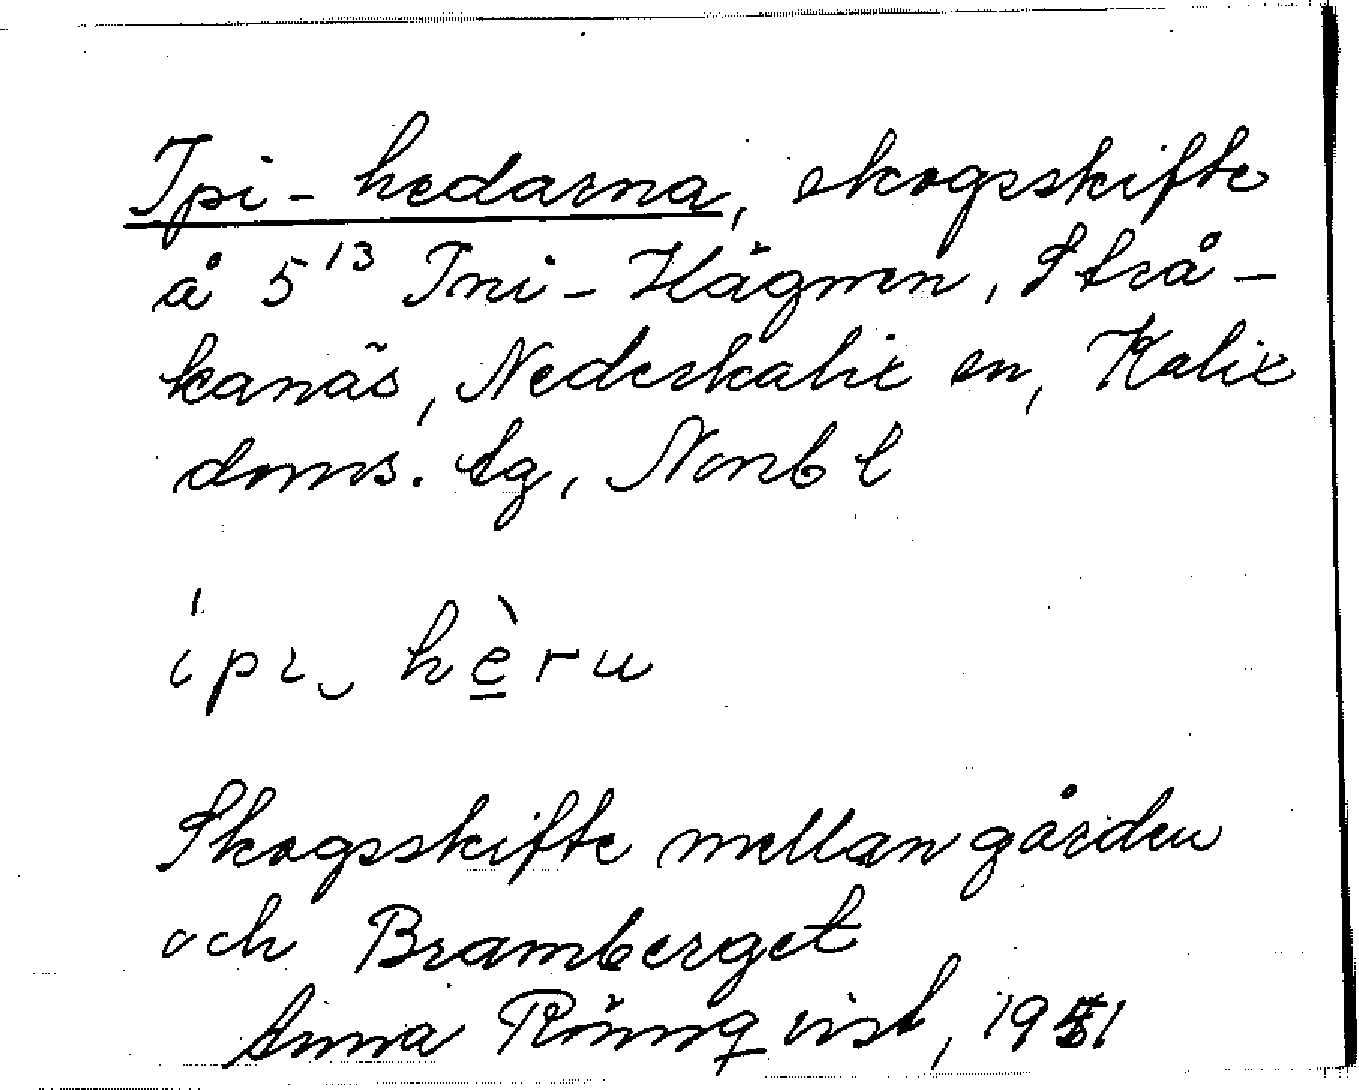 Ipi-hedarna, skogsskifte
å 5¹³ Ini-Hägnen, Strå-
kanäs, Nederkalix sn, Kalix
doms. tg, Norrb l
ípı‿hèru
Skogsskifte mellan gården
och Bramberget
Anna Rönnqvist, 1951